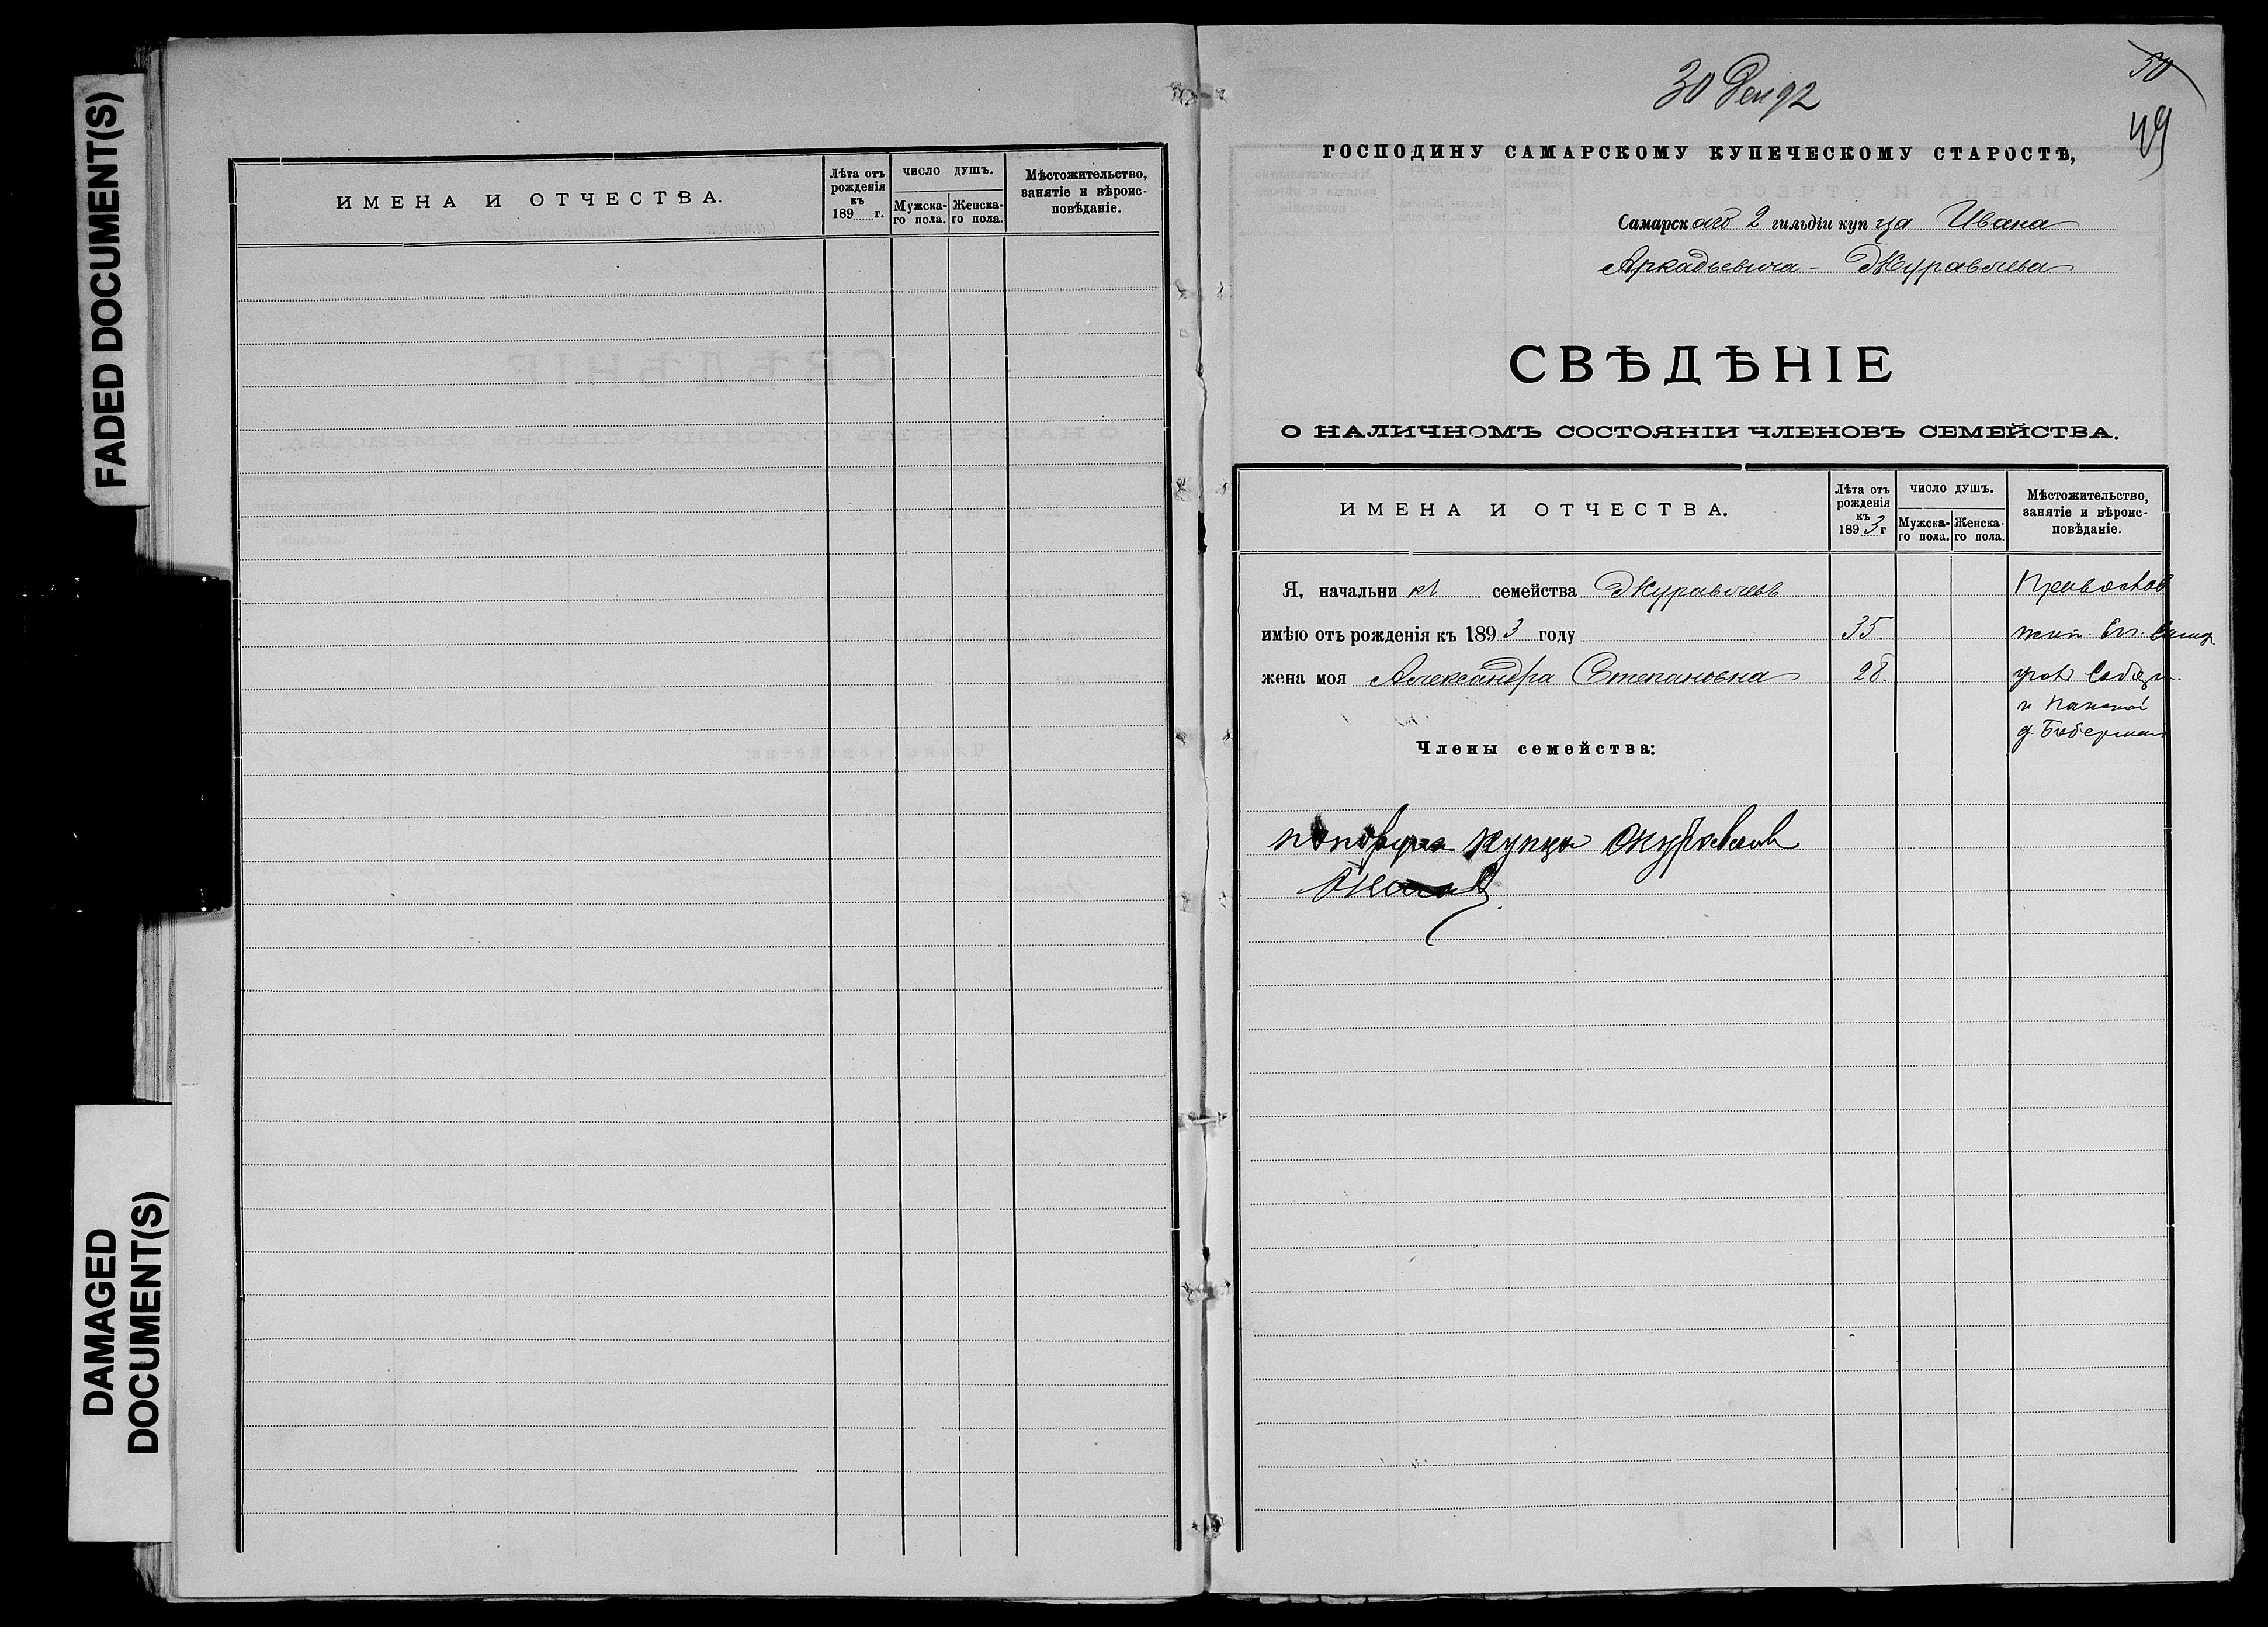 FADED DOCUMENT(S)
DAMAGED
DOCUMENT(S)
ИМЕНА И ОТЧЕСТВА.
Лѣта отъ
рожденія
къ
189 г.
ЧИСЛО ДУШЪ.
Мужска-
го пола.
Женска-
го пола.
Мѣстожительство,
занятіе и вѣроис-
повѣданіе.
30 Дек 92
50
49
ГОСПОДИНУ САМАРСКОМУ КУПЕЧЕСКОМУ СТАРОСТѢ,
Самарскаго 2 гильдіи купца Ивана
Аркадьевича - Журавлева
СВѢДѢНІЕ
О НАЛИЧНОМЪ СОСТОЯНІИ ЧЛЕНОВЪ СЕМЕЙСТВА.
ИМЕНА И ОТЧЕСТВА.
Лѣта отъ
рожденія
къ
1893 г
ЧИСЛО ДУШЪ.
Мужска-
го пола.
Женска-
го пола.
Мѣстожительство,
занятіе и вѣроис-
повѣданіе.
Я, начальникъ семейства Журавлевъ Православ
имѣю отъ рожденія къ 1893 году 35. жит
жена моя Александра Степановна 28.
и
д.
Члены семейства:
купца